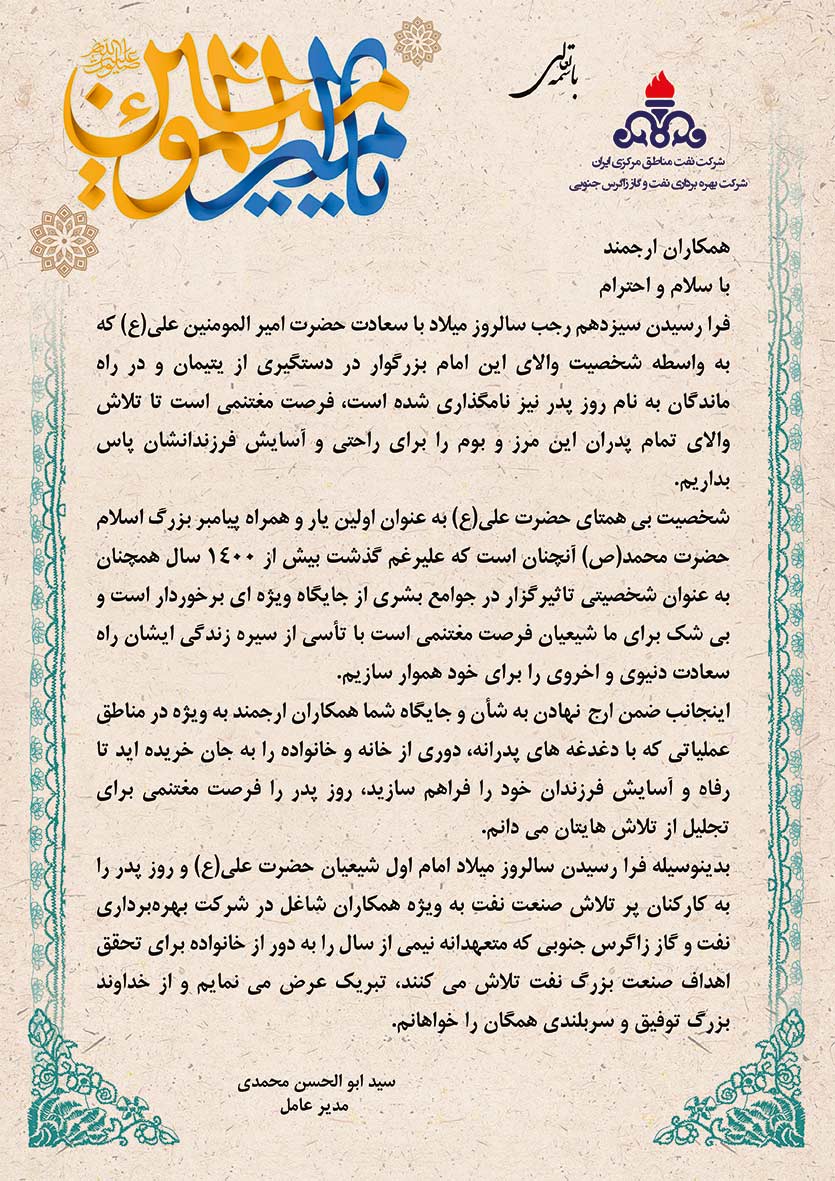 باسمه تعالی
یا امیرالمومنین
شرکت نفت مناطق مرکزی ایران
شرکت بهره برداری نفت و گاز زاگرس جنوبی
همکاران ارجمند
با سلام و احترام
فرا رسیدن سیزدهم رجب سالروز میلاد با سعادت حضرت امیر المومنین علی(ع) که
به واسطه شخصیت والای این امام بزرگوار در دستگیری از یتیمان و در راه
ماندگان به نام روز پدر نیز نامگذاری شده است، فرصت مغتنمی است تا تلاش
والای تمام پدران این مرز و بوم را برای راحتی و آسایش فرزندانشان پاس
بداریم.
شخصیت بی همتای حضرت علی(ع) به عنوان اولین یار و همراه پیامبر بزرگ اسلام
حضرت محمد(ص) آنچنان است که علیرغم گذشت بیش از ۱٤۰۰ سال همچنان
به عنوان شخصیتی تاثیرگزار در جوامع بشری از جایگاه ویژه ای برخوردار است و
بی شک برای ما شیعیان فرصت مغتنمی است با تأسی از سیره زندگی ایشان راه
سعادت دنیوی و اخروی را برای خود هموار سازیم.
اینجانب ضمن ارج نهادن به شأن و جایگاه شما همکاران ارجمند به ویژه در مناطق
عملیاتی که با دغدغه های پدرانه، دوری از خانه و خانواده را به جان خریده اید تا
رفاه و آسایش فرزندان خود را فراهم سازید، روز پدر را فرصت مغتنمی برای
تجلیل از تلاش هایتان می دانم.
بدینوسیله فرا رسیدن سالروز میلاد امام اول شیعیان حضرت علی(ع) و روز پدر را
به کارکنان پر تلاش صنعت نفت به ویژه همکاران شاغل در شرکت بهره‌برداری
نفت و گاز زاگرس جنوبی که متعهدانه نیمی از سال را به دور از خانواده برای تحقق
اهداف صنعت بزرگ نفت تلاش می کنند، تبریک عرض می نمایم و از خداوند
بزرگ توفیق و سربلندی همگان را خواهانم.
سید ابو الحسن محمدی
مدیر عامل